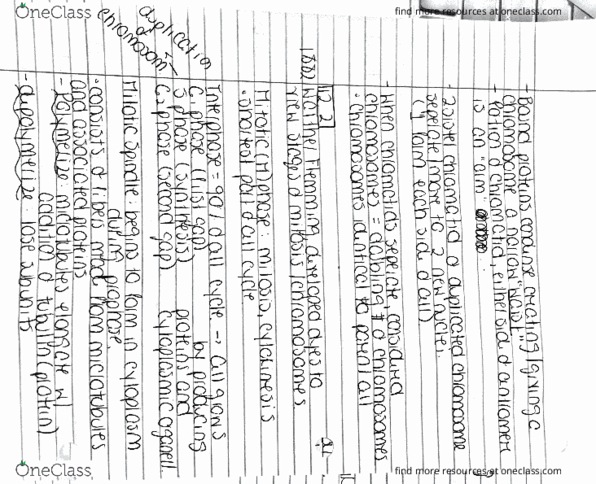 OneClass
find more resources at oneclass.com
- Bound proteins condense creating/giving a
chromosome a narrow "waist"
- Portion of chromatid, either side of centromere
is an "arm"
- 2 sister chromatid of duplicated chromosome
seperate/move to 2 new nuclei
(1 form each side of cell)
- When chromatids seperate considered
chromosomes = doubling # of chromosomes
• chromosomes identical to parent cell
12.2
1882 Walther Flemming developed dyes to
view stages of mitosis/chromosomes
Mitotic (M) phase: mitosis, cytokinesis
• shortest part of cell cycle
Interphase = 90% of cell cycle → cell grows
G1 phase (first gap) by producing
S phase (synthesis) proteins and
G2 phase (second gap) cytoplasmic organell
duplication
of
chromosom
Mitotic spindle: begins to form in cytoplasm
during prophase.
• consists of fibers made from microtubules
and associated proteins
- polymerize: microtubules elongate w/
addition of tubulin (protein)
- depolymerize: lose subunits
OneClass
find more resources at oneclass.com